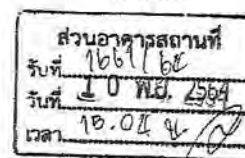 ส่วนอาคารสถานที่
รับที่ 1661/64
วันที่ 10 พ.ย. 2564
เวลา 15.04 น.